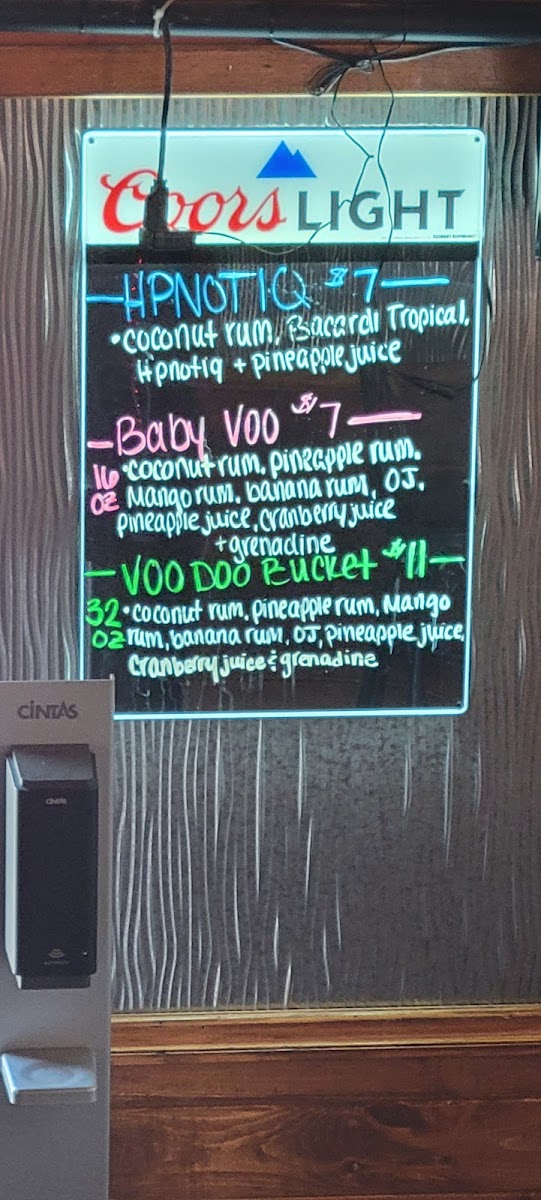 Coors LIGHT
HPNOTIQ $7
•coconut rum, Bacardi Tropical,
Hpnotiq + pineapple juice
Baby VOO $7
16 •coconut rum, pineapple rum,
OZ Mango rum, banana rum, OJ,
pineapple juice, cranberry juice
+grenadine
VOO DOO Bucket $11
32 •coconut rum, pineapple rum, Mango
OZ rum, banana rum, OJ, pineapple juice,
cranberry juice & grenadine
CINTAS
CINTAS